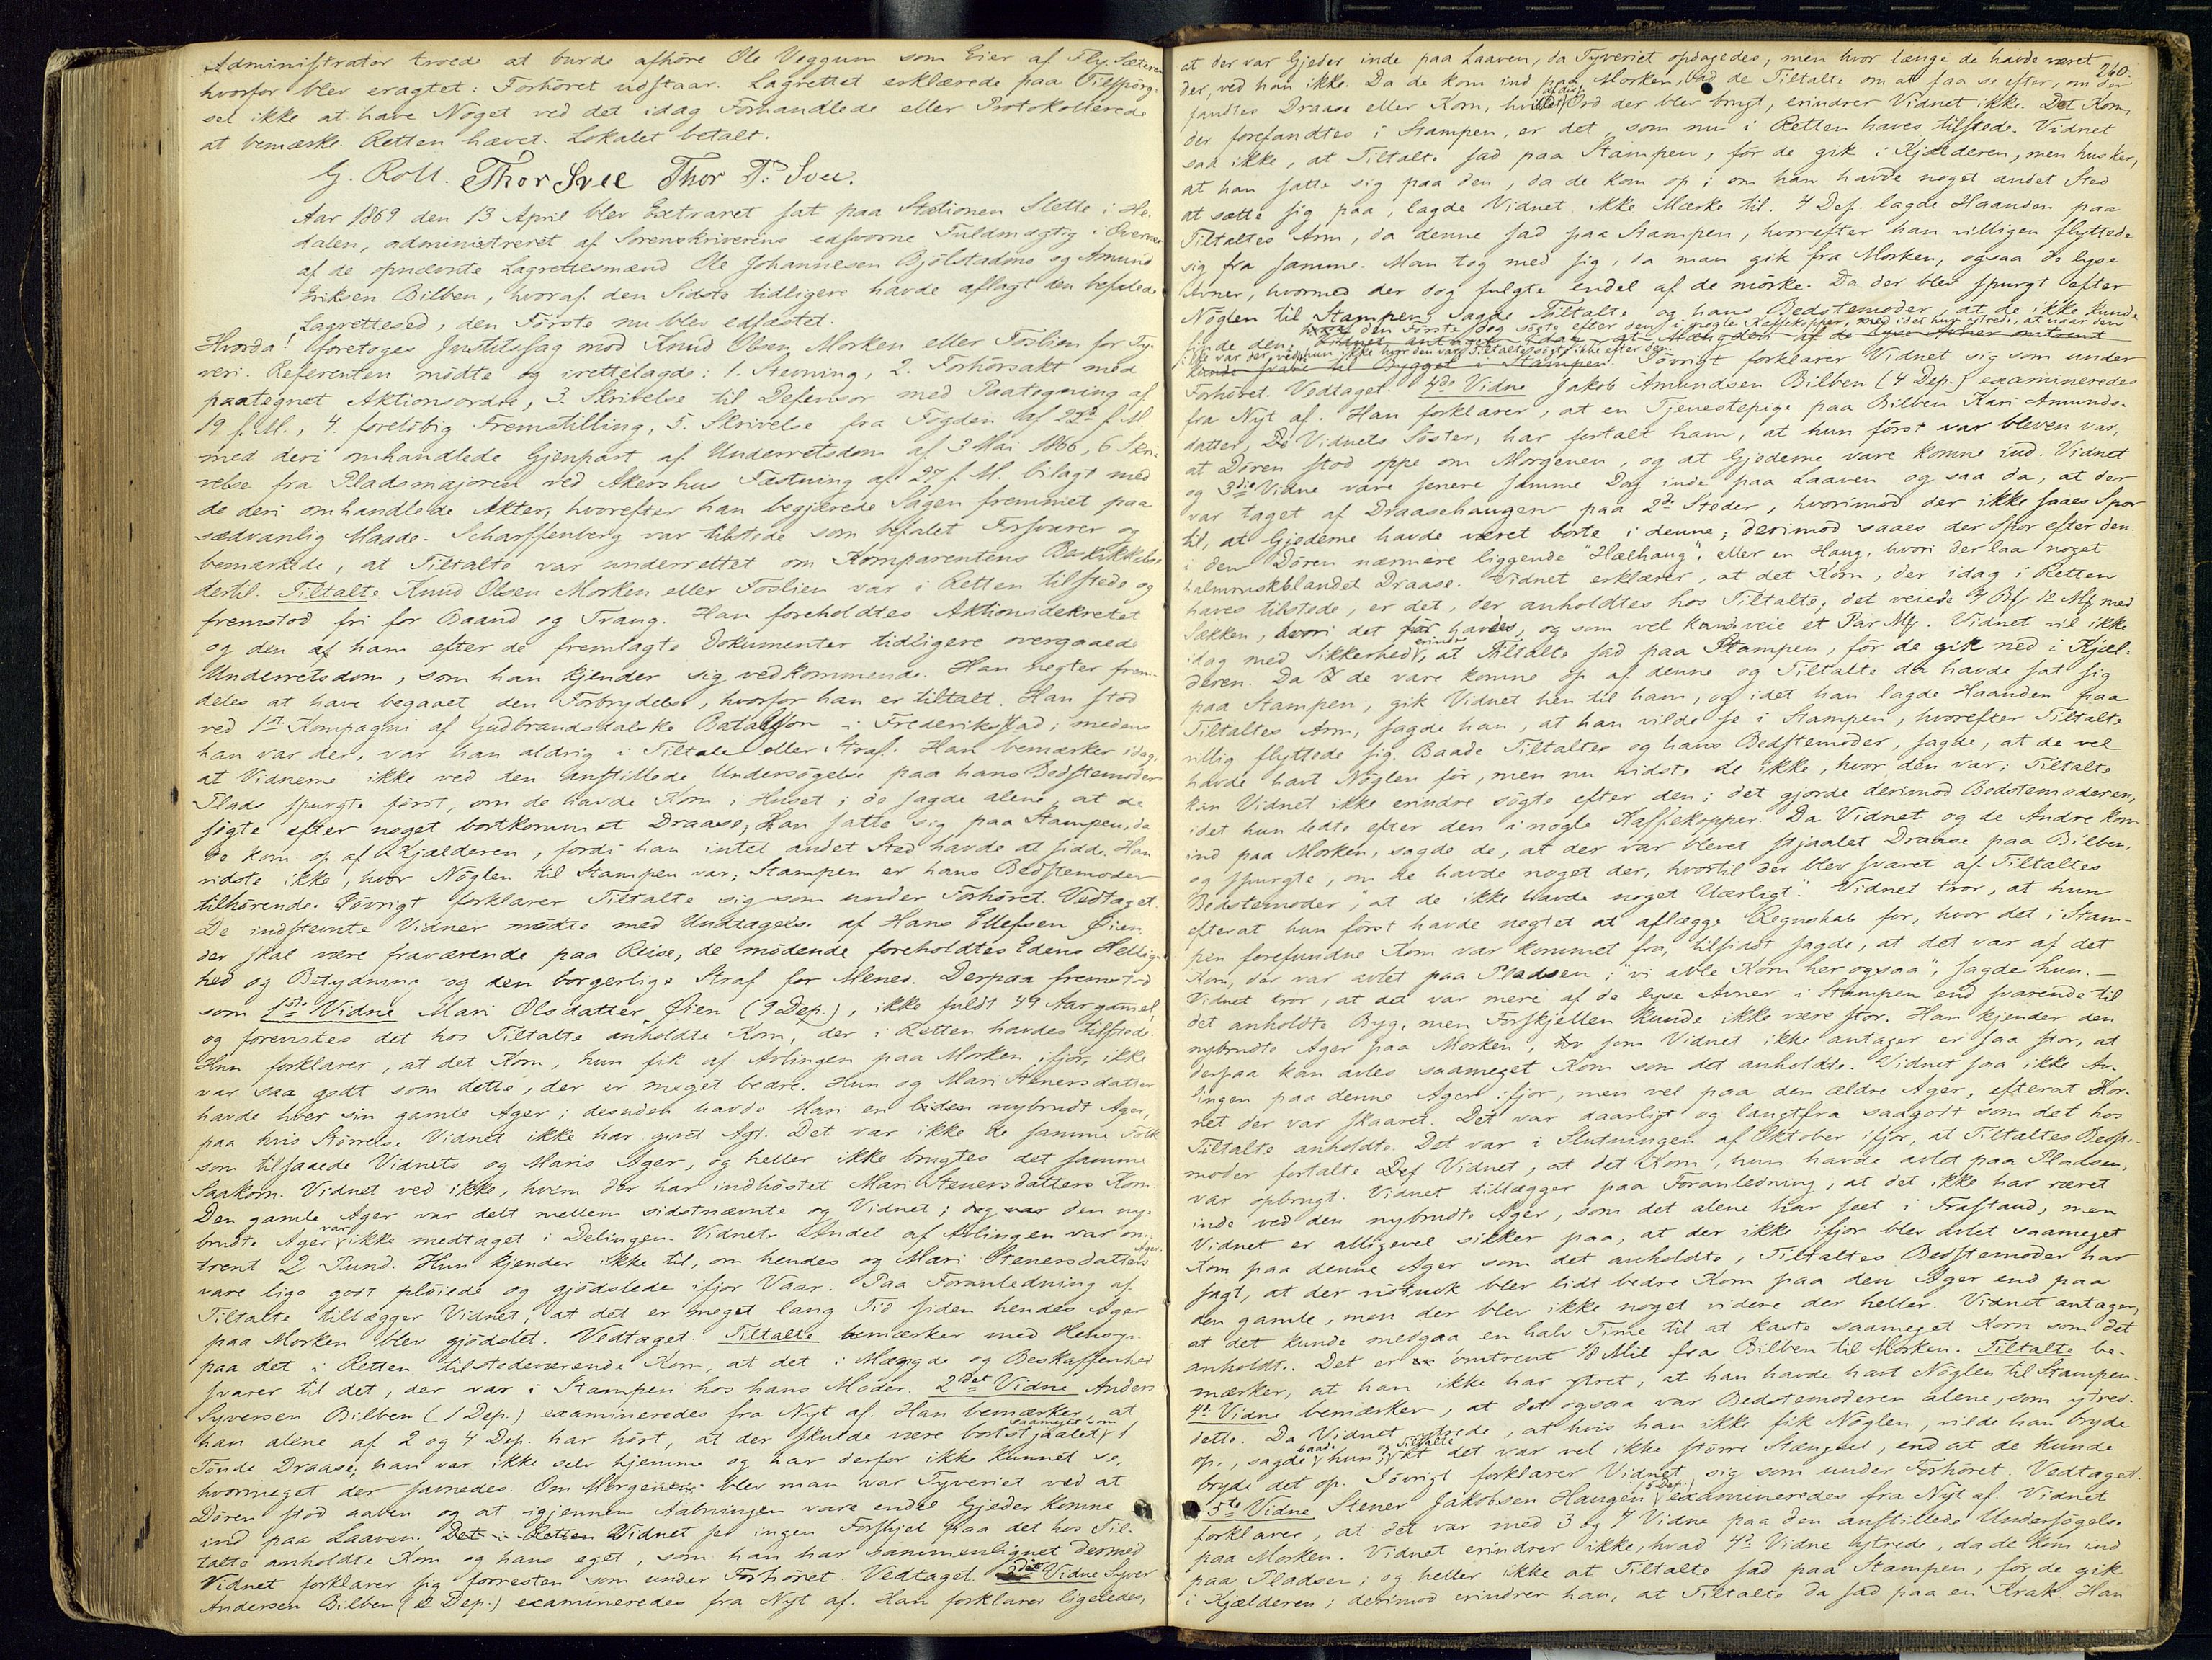 Administrator troede at burde afhöre Ole Veggum som Eier af Fly Sæteren
hvorfor blev eragtet: Forhöret udstaar. Lagrettet erklærede paa Tilspörg-
sel ikke at have Noget ved det idag Forhandlede eller Protokollerede
at bemærke. Retten hævet. Lokalet betalt.
G. Roll. Thor Svee Thor T. Svee.
Aar 1869 den 13 April blev Extraret sat paa Stationen Slette i He-
dalen, administreret af Sorenskriverens edsvorne Fuldmægtig i Overvær
af de opnævnte Lagrettesmænd Ole Johannesen Bjölstadmo og Amund
Eriksen Bilben, hvoraf den Sidste tidligere havde aflagt den befalede
Lagrettesed, den Förste nu blev edfæstet.
Hvorda! foretoges Justitssag mod Knud Olsen Morken eller Foslien for Ty-
veri. Referenten mödte og irettelagde: 1. Stevning, 2. Forhörsakt med
paategnet Aktionsordre, 3. Skrivelse til Defensor med Paategning af
19 f. M., 4. foreløbig Fremstilling, 5. Skrivelse fra Fogden af 22de f. M.
med deri omhandlede Gjenpart af Underretsdom af 3 Mai 1866, 6 Skri-
velse fra Pladsmajoren ved Akershus Fæstning af 27 f. M. bilagt med
de deri omhandlede Akter, hvorefter han begjærede Sagen fremmet paa
sædvanlig Maade. Scharffenberg var tilstede som befalet Forsvarer og
bemærkede, at Tiltalte var underrettet om Komparentens Beskikkelse
dertil. Tiltalte Knud Olsen Morken eller Foslien var i Retten tilstede og
fremstod fri for Baand og Tvang. Han foreholdtes Aktionsdekretet
og den af ham efter de fremlagte Dokumenter tidligere overgaaede
Underretsdom, som han kjender sig vedkommende. Han negter frem-
deles at have begaaet den Forbrydelse, hvorfor han er tiltalt. Han stod
ved 1ste Kompagni af Gudbrandsdalske Bataljon i Frederikstad; medens
han var der, var han aldrig i Tiltale eller Straf. Han bemærker idag,
at Vidnerne ikke ved den anstillede Undersögelse paa hans Bedstemoders
Plads spurgte först, om de havde Korn i Huset; de sagde alene, at de
sögte efter noget bortkommet Draase, Han satte sig paa Stampen, da
de kom op af Kjælderen, fordi han intet andet Sted havde at sidde. Han
vidste ikke, hvor Nöglen til Stampen var; Stampen er hans Bedstemoder
tilhörende. Iövrigt forklarer Tiltalte sig som under Forhöret. Vedtaget.
De indstevnte Vidner mödte med Undtagelse af Hans Ellefsen Øien
der skal være fraværende paa Reise, de mödende foreholdtes Edens Hellig-
hed og Betydning og den borgerlige Straf for Mened. Derpaa fremstod
som 1ste Vidne Mari Olsdatter Øien (9 Dep.), ikke fuldt 49 Aar gammel,
og forevistes det hos Tiltalte anholdte Korn, der i Retten havdes tilstede.
Hun forklarer, at det Korn, hun fik af Avlingen paa Morken ifjor, ikke
var saa godt som dette, der er meget bedre. Hun og Mari Stenersdatter
havde hver sin gamle Ager; desuden havde Mari en liden nybrudt Ager,
paa hvis Størrelse Vidnet ikke har givet Agt. Det var ikke de samme Folk
som tilsaaede Vidnets og Maris Ager, og heller ikke brugtes det samme
Saakorn. Vidnet ved ikke, hvem der har indhöstet Mari Stenersdatters Korn
Den gamle Ager var delt mellem sidstnævnte og Vidnet; dog var den ny-
brudte Ager var ikke medtaget i Delingen. Vidnets Andel af Avlingen var om-
trent 2 Pund. Hun kjender ikke til, om hendes og Mari Stenersdatters Ager
vare lige godt plöiede og gjödslede ifjor Vaar. Paa Foranledning af
Tiltalte tillægger Vidnet, at det er meget lang Tid siden hendes Ager
paa Morken blev gjödslet. Vedtaget. Tiltalte bemærker med Hensyn
paa det i Retten tilstedeværende Korn, at det i Mængde og Beskaffenhed
svarer til det, der var i Stampen hos hans Moder. 2det Vidne Anders
Syversen Bilben (1 Dep.) examineredes fra Nyt af. Han bemærker, at
han alene af 2 og 4 Dep. har hört, at der skulde være bortstjaalet saameget som 1
Tönde Draase; han var ikke selv hjemme og har derfor ikke kunnet se,
hvormeget der savnedes. Om Morgenen blev man var Tyveriet ved at
Dören stod aaben og at igjennem Aabningen vare endel Gjeder komne
ind paa Laaven. Det i Retten Vidnet ser ingen Forskjel paa det hos Til-
talte anholdte Korn og hans eget, som han har sammenlignet dermed
Vidnet forklarer sig forresten som under Forhöret. Vedtaget. 3die Vidne Syver
Andersen Bilben (2 Dep.) examineredes fra Nyt af. Han forklarer ligeledes,
260.
at der var Gjeder inde paa Laaven, da Tyveriet opdagedes, men hvor længe de havde været
der, ved han ikke. Da de kom ind paa Morken, bad de Tiltalte om at faa se efter, om der
fandtes Draase eller Korn, hvilket af disse Ord der blev brugt, erindrer Vidnet ikke. Det Korn,
der forefandtes i Stampen, er det, som nu i Retten haves tilstede. Vidnet
saa ikke, at Tiltalte sad paa Stampen, för de gik i Kjælderen, men husker,
at han satte sig paa den, da de kom op; om han havde noget andet Sted
at sætte sig paa, lagde Vidnet ikke Mærke til. 4 Dep. lagde Haanden paa
Tiltaltes Arm, da denne sad paa Stampen, hvorefter han villigen flyttede
sig fra samme. Man tog med sig, da man gik fra Morken, ogsaa de lyse
Avner, hvormed der dog fulgte endel af de mörke. Da der blev spurgt efter
Nöglen til Stampen sagde Tiltalte og hans Bedstemoder, at de ikke kunde
finde den, den Förste dog sögte efter den i nogle Kaffekopper, idet hun ytrede, at naar den
ikke var der, ved hun ikke hvor den var. Tiltalte sögte ikke efter den.
Vidnet antager idag at Mængden af de lyse Avner omtrent
kunde svare til Bygget i Stampen. Iövrigt forklarer Vidnet sig som under
Forhöret. Vedtaget. 4de Vidne Jakob Amundsen Bilben (4 Dep.) examineredes
fra Nyt af. Han forklarer, at en Tjenestepige paa Bilben Kari Amunds-
datter, Vidnets Söster, har fortalt ham, at hun först var bleven var,
at Dören stod oppe om Morgenen, og at Gjederne vare komne ind. Vidnet
og 3die Vidne vare senere samme Dag inde paa Laaven og saa da, at der
var taget af Draasehaugen paa 2de Steder, hvorimod der ikke saaes Spor
til, at Gjederne havde været borte i denne; derimod saaes der Spor efter dem
i den Dören nærmere liggende "Hælhaug", eller en Haug, hvori der laa noget
halmmskblandet Draase. Vidnet erklærer, at det Korn, der idag i Retten
haves tilstede, er det, der anholdtes hos Tiltalte; det veiede 4 Bpd 12 Mk med
Sækken, hvori det havdes, og som vel kunde veie et Par Mk. Vidnet vil ikke
idag med Sikkerhed erindre, at Tiltalte sad paa Stampen, för de gik ned i Kjæl-
deren. Da de vare komne op af denne og Tiltalte da havde sat sig
paa Stampen, gik Vidnet hen til ham, og idet han lagde Haanden paa
Tiltaltes Arm, sagde han, at han vilde se i Stampen, hvorefter Tiltalte
villig flyttede sig. Baade Tiltalte og hans Bedstemoder, sagde, at de vel
havde havt Nöglen för, men nu vidste de ikke, hvor den var; Tiltalte
kan Vidnet ikke erindre sögte efter den; det gjorde derimod Bedstemoderen,
idet hun ledte efter den i nogle Kaffekopper. Da Vidnet og de Andre kom
ind paa Morken, sagde de, at der var blevet stjaalet Draase paa Bilben,
og spurgte, om de havde noget der, hvortil der blev svaret af Tiltaltes
Bedstemoder, "at de ikke havde noget Uærligt". Vidnet tror, at hun
efterat hun först havde negtet at aflægge Regnskab for, hvor det i Stam-
pen forefundne Korn var kommet fra, tilsidst sagde, at det var af det
Korn, der var avlet paa Pladsen; "vi avle Korn her ogsaa", sagde hun. —
Vidnet tror, at det var mere af de lyse Avner i Stampen end svarende til
det anholdte Byg, men Forskjellen kunde ikke være stor. Han kjender den
nybrudte Ager paa Morken, som Vidnet ikke antager er saa stor, at
derpaa kan avles saameget Korn som det anholdte. Vidnet saa ikke Av-
lingen paa denne Ager ifjor, men vel paa den ældre Ager, efterat Kor-
net der var skaaret. Det var daarligt og langtfra saagodt som det hos
Tiltalte anholdte. Det var i Slutningen af Oktober ifjor, at Tiltaltes Bedste-
moder fortalte Vidnet, at det Korn, hun havde avlet paa Pladsen,
var opbrugt. Vidnet tillægger paa Foranledning, at det ikke har været
inde ved den nybrudte Ager, som det alene har seet i Frastand, men
Vidnet er alligevel sikker paa, at der ikke ifjor blev avlet saameget
Korn paa denne Ager som det anholdte; Tiltaltes Bedstemoder har
sagt, at der vistnok blev lidt bedre Korn paa den Ager end paa
den gamle, men der blev ikke noget videre der heller. Vidnet antager,
at det kunde medgaa en halv Time til at kaste saameget Korn som det
anholdte. Det er omtrent 1/8 Mil fra Bilben til Morken. Tiltalte be-
mærker, at han ikke har ytret, at han havde havt Nöglen til Stampen.
4de Vidne bemærker, at det ogsaa var Bedstemoderen alene, som ytrede
dette. Da Vidnet ytrede, at hvis han ikke fik Nöglen, vilde han bryde
op, sagde baade hun og Tiltalte, at det var vel ikke större Stængsel, end at de kunde
bryde det op. Iövrigt forklarer Vidnet sig som under Forhöret. Vedtaget.
5te Vidne Stener Jakobsen Haugen (5 Dep.) examineredes fra Nyt af. Vidnet
forklarer, at det var med 3 og 4 Vidne paa den anstillede Undersögelse
paa Morken. Vidnet erindrer ikke, hvad 4de Vidne ytrede, da de kom ind
paa Pladsen; og heller ikke at Tiltalte sad paa Stampen, för de gik
i Kjælderen; derimod erindrer han, at Tiltalte da sad paa en Krak. Han